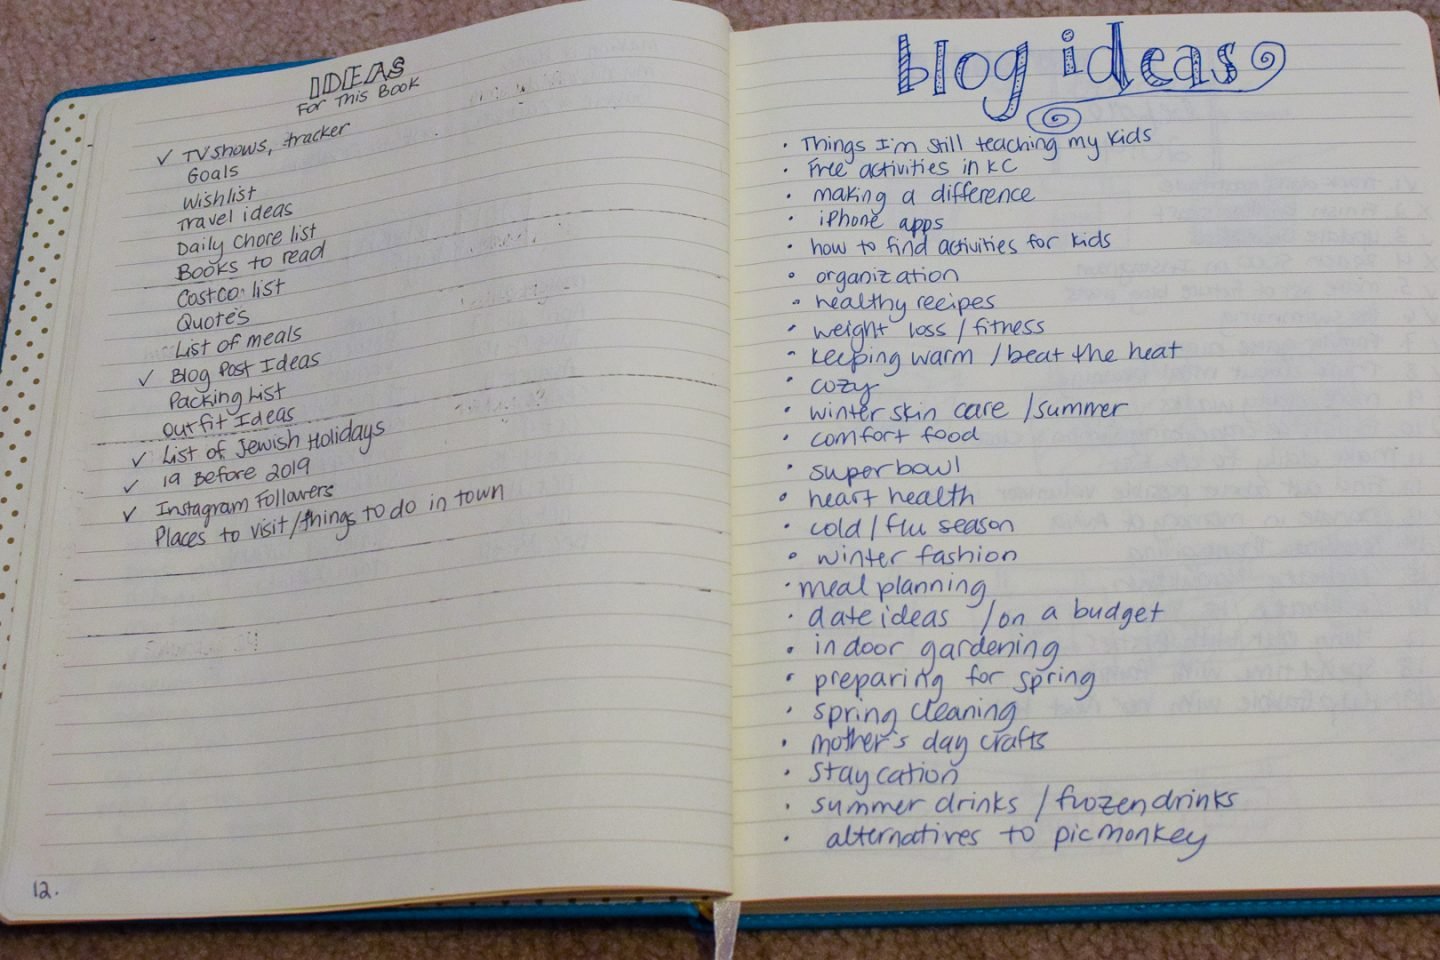 IDEAS
For This Book
✓ TV shows, tracker
Goals
Wishlist
Travel ideas
Daily Chore list
Books to read
Costco list
Quotes
List of meals
✓ Blog Post Ideas
Packing List
Outfit Ideas
✓ List of Jewish Holidays
✓ 19 Before 2019
✓ Instagram Followers
Places to visit/things to do in town
12.
blog ideas
• Things I'm still teaching my kids
• Free activities in KC
• making a difference
• iphone apps
• how to find activities for kids
• organization
• healthy recipes
• weight loss / fitness
• keeping warm / beat the heat
• cozy
• winter skin care / summer
• comfort food
• superbowl
• heart health
• cold / flu season
• winter fashion
• meal planning
• date ideas / on a budget
• indoor gardening
• preparing for spring
• spring cleaning
• mother's day crafts
• staycation
• summer drinks / frozen drinks
• alternatives to picmonkey